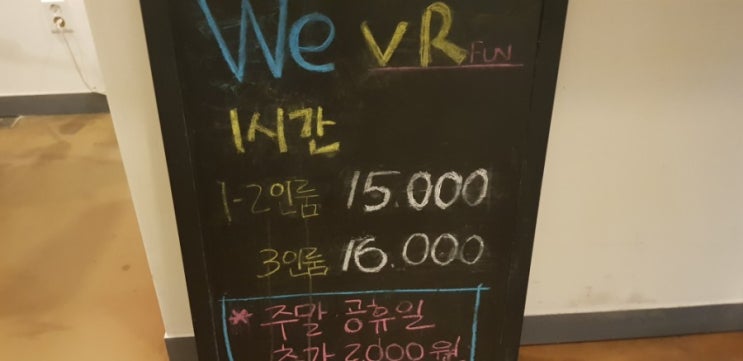 We VR FUN
1시간
1-2인룸 15.000
3인룸 16.000
* 주말 공휴일
추가 2000원